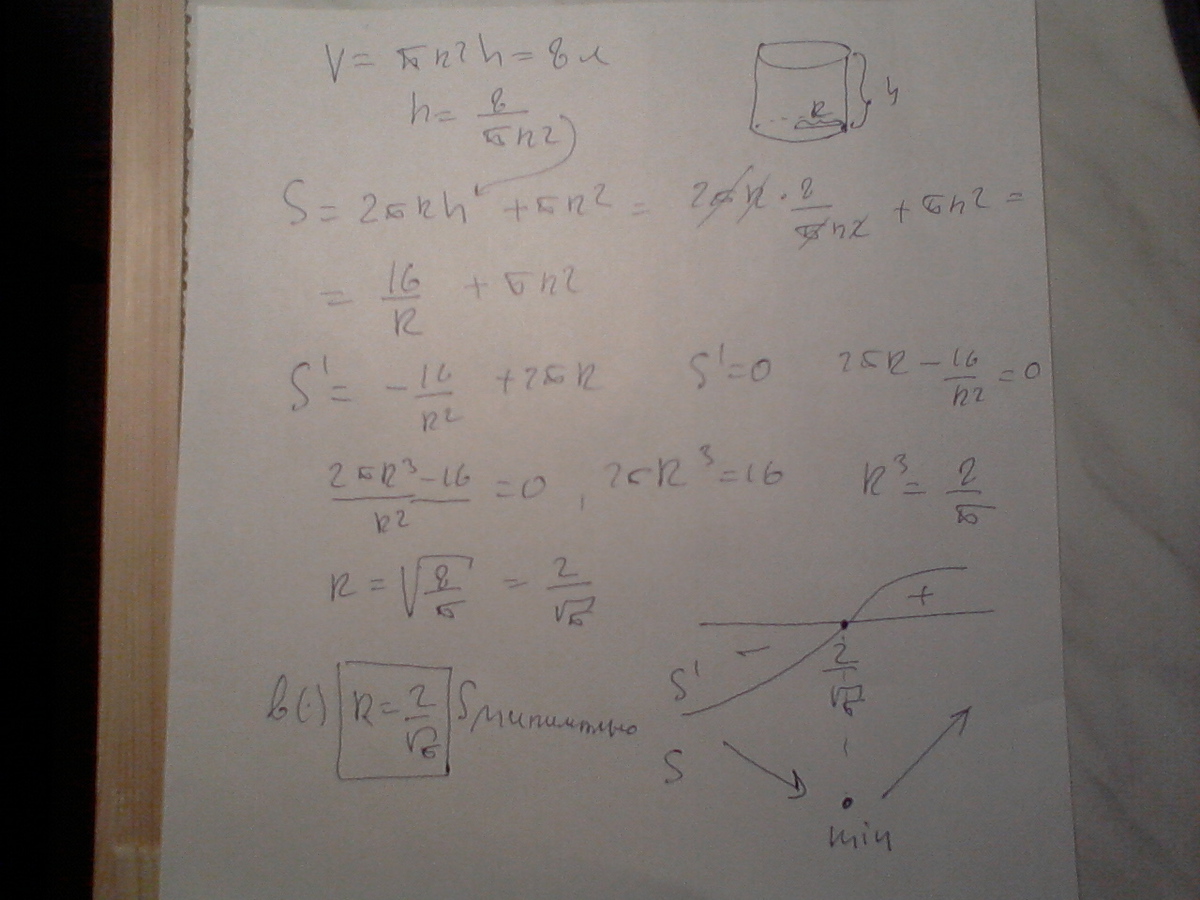 V = πR² h = 8 л
h = 8/(πR²)
R h
S = 2πRh + πR² = 2πR · 8/(πR²) + πR² =
= 16/R + πR²
S' = -16/R² + 2πR S' = 0 2πR - 16/R² = 0
(2πR³ - 16)/R² = 0 , 2πR³ = 16 R³ = 8/π
R = √(8/π) = 2/√π
+
- 2/√π
S'
в (·) R = 2/√π S минимально
S
min